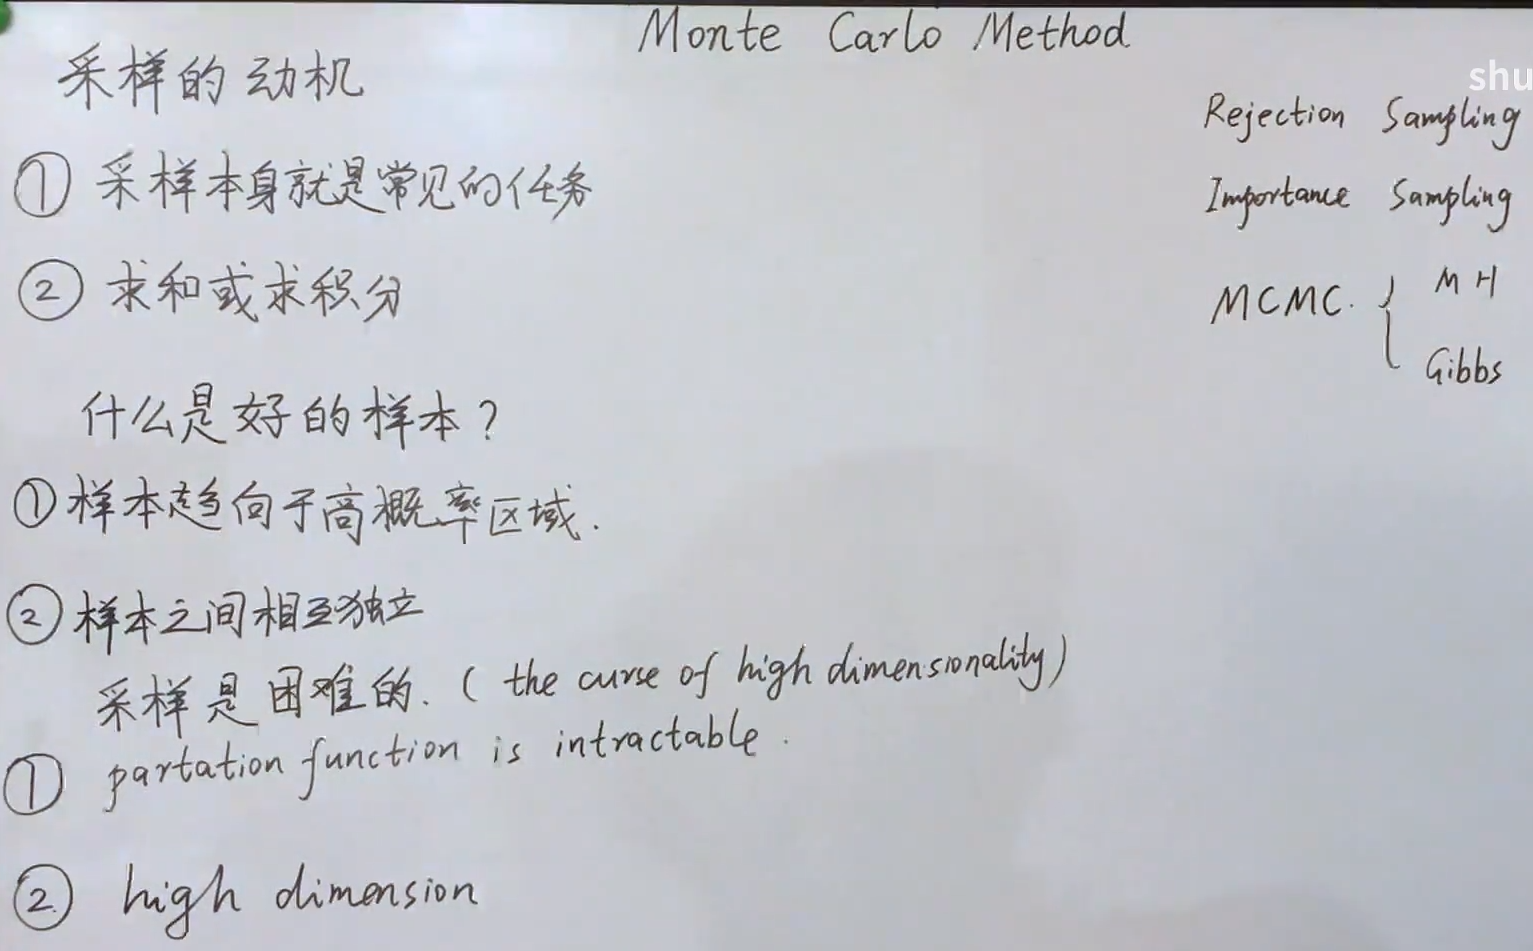 Monte Carlo Method
采样的动机
① 采样本身就是常见的任务
② 求和或求积分
什么是好的样本?
① 样本趋向于高概率区域.
② 样本之间相互独立
采样是困难的. ( the curse of high dimensionality)
① partation function is intractable.
② high dimension
shu
Rejection Sampling
Importance Sampling
MCMC. { MH
Gibbs